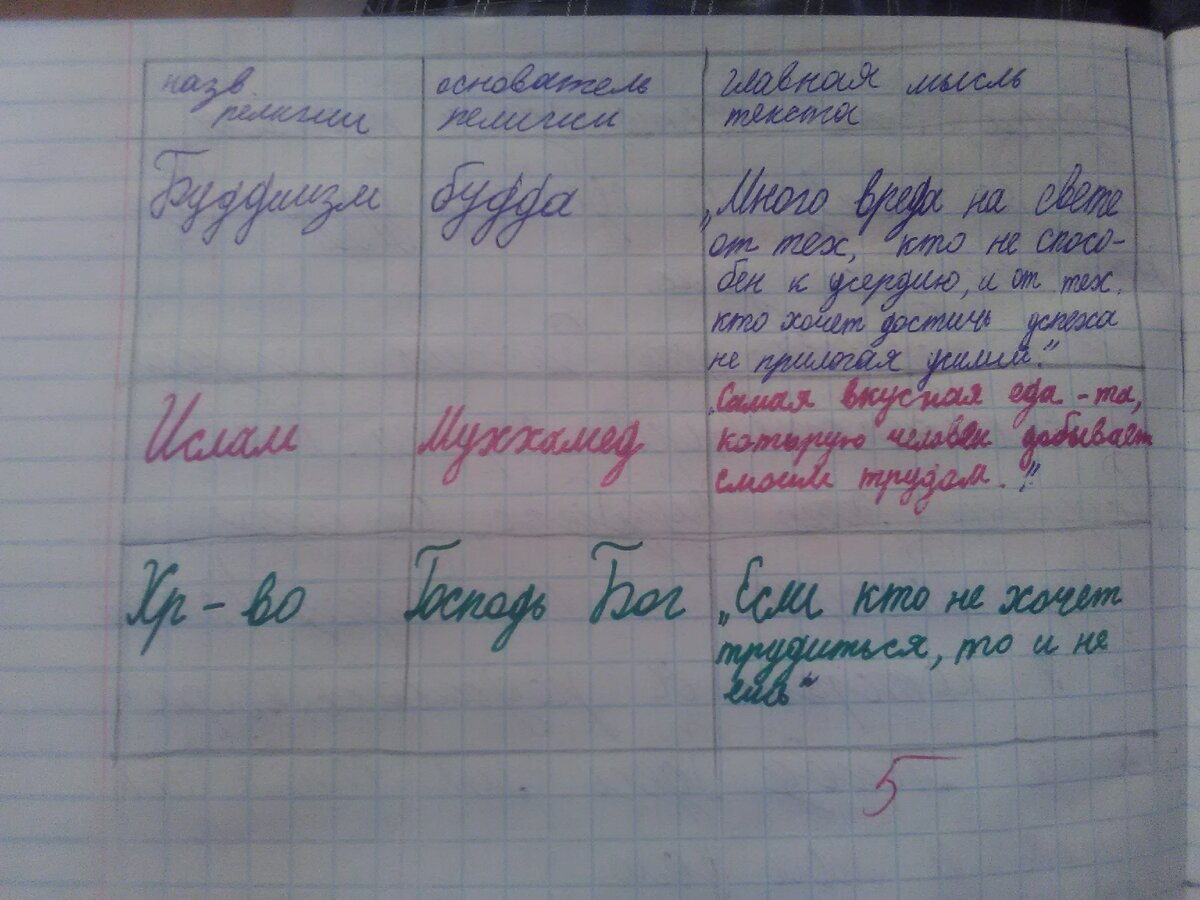 назв. основатель главная мысль
религии религии текста
Буддиизм будда „Много вреда на свете
от тех, кто не спосо-
бен к усердию, и от тех,
кто хочет достичь успеха
не прилогая усилий."
Ислам Муххамед „Самая вкусная еда - та,
которую человек добывает
смоим трудом."
Хр - во Господь Бог „Если кто не хочет
трудиться, то и не
ешь"
5